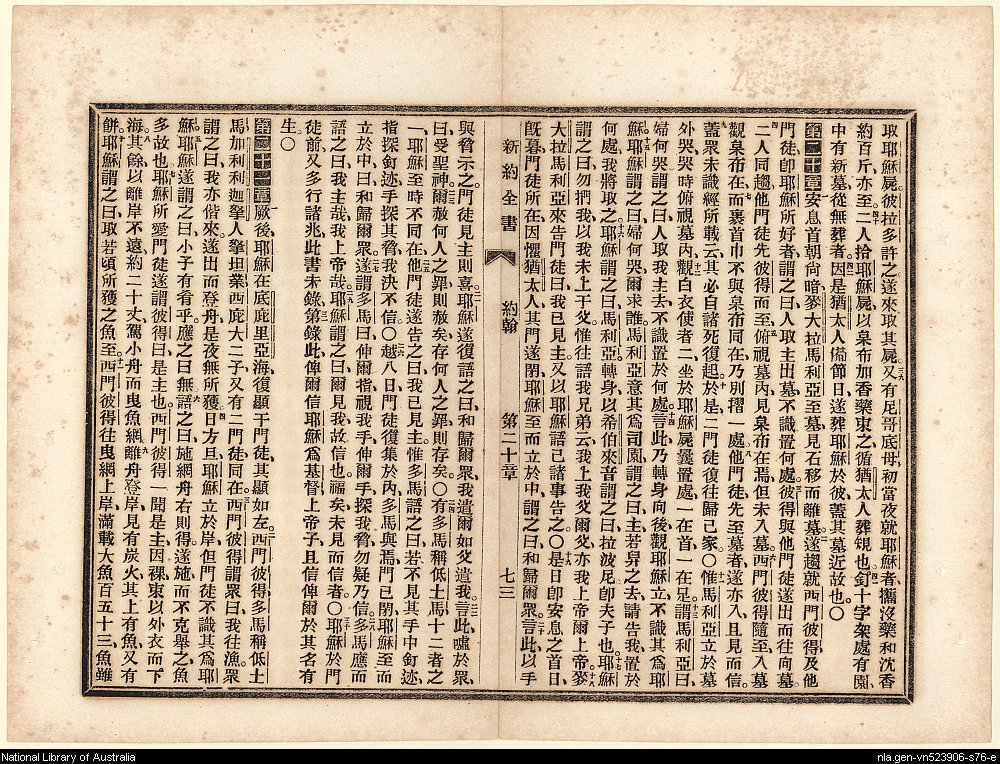 取耶穌屍彼拉多許之遂來取其屍又有尼哥底母初當夜就耶穌者攜沒藥和沈香
約百斤亦至二人拾耶穌屍以枲布加香藥束之循猶太人葬規也釘十字架處有園
中有新墓從無葬者因是猶太人備節日遂葬耶穌於彼蓋其墓近故也〇
第二十章安息首朝尙暗麥大拉馬利亞至墓見石移而離墓遂趨就西門彼得及他
門徒卽耶穌所好者謂之曰人取主出墓不識置何處彼得與他門徒遂出而往向墓
二人同趨他門徒先彼得而至俯視墓内見枲布在焉但未入墓西門彼得隨至入墓
觀枲布在而裹首巾不與枲布同在乃別摺一處他門徒先至墓者遂亦入且見而信
蓋衆未識經所載云其必自諸死復起於是二門徒復往歸己家〇惟馬利亞立於墓
外哭哭時俯視墓内觀白衣使者二坐於耶穌屍曩置處一在首一在足謂馬利亞曰
婦何哭謂之曰人取我主去不識置於何處言此乃轉身向後觀耶穌立不識其爲耶
穌耶穌謂之曰婦何哭爾求誰馬利亞意其爲司園謂之曰主若舁之去請告我置於
何處我將取之耶穌謂之曰馬利亞轉身以希伯來音謂之曰拉波尼卽夫子也耶穌
謂之曰勿捫我以我未上于父惟往語我兄弟云我上我父爾父亦我上帝爾上帝麥
大拉馬利亞來吿門徒曰我已見主又以耶穌語己諸事吿之〇是日卽安息之首日
旣暮門徒所在因懼猶太人其門遂閉耶穌至而立於中謂之曰和歸爾衆言此以手
新約全書 約翰 第二十章 七三
與脅示之門徒見主則喜耶穌遂復語之曰和歸爾衆我遣爾如父遣我言此噓於衆
曰受聖神爾赦何人之罪則赦矣存何人之罪則存矣〇有多馬稱低土馬十二者之
一耶穌至時不同在他門徒遂吿之曰我已見主惟多馬語之曰若不見其手中釘迹
指探釘迹手探其脅我決不信〇越八日門徒復集於内多馬與焉門已閉耶穌至而
立於中曰和歸爾衆遂謂多馬曰伸爾指視我手伸爾手探我脅勿疑乃信多馬應而
語之曰我主哉我上帝哉耶穌謂之曰爾見我故信也福矣未見而信者〇耶穌於門
徒前又多行諸兆此書未錄第錄此俾爾信耶穌爲基督上帝子且信俾爾於其名有
生〇
第二十一章厥後耶穌在底庇里亞海復顯于門徒其顯如左西門彼得多馬稱低土
馬加利利迦拏人拏坦業西庇大二子又有二門徒同在西門彼得謂衆曰我往漁衆
謂之曰我亦偕來遂出而登舟是夜無所獲日方旦耶穌立於岸但門徒不識其爲耶
穌耶穌遂謂之曰小子有肴乎應之曰無語之曰施網舟右則得遂施而不克舉之魚
多故也耶穌所愛門徒遂謂彼得曰是主也西門彼得一聞是主因裸束以外衣而下
海其餘以離岸不遠約二十丈駕小舟而曳魚網離舟登岸見有炭火其上有魚又有
餅耶穌謂之曰取若頃所獲之魚至西門彼得往曳網上岸滿載大魚百五十三魚雖
National Library of Australia
nla.gen-vn523906-s76-e